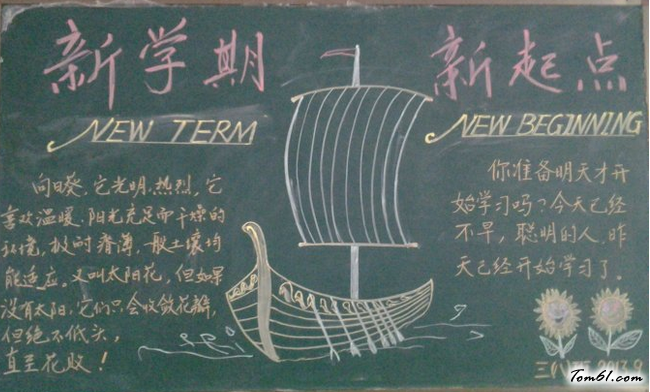 新学期 新起点
NEW TERM
NEW BEGINNING
向日葵,它光明,热烈,它
喜欢温暖,阳光充足而干燥的
环境,极耐瘠薄,一般土壤均
能适应。又叫太阳花,但如果
没有太阳,它们只会收敛花瓣,
但绝不低头,
直至花败!
你准备明天才开
始学习吗?今天已经
不早,聪明的人,昨
天已经开始学习了。
2013.9
Tom61.com